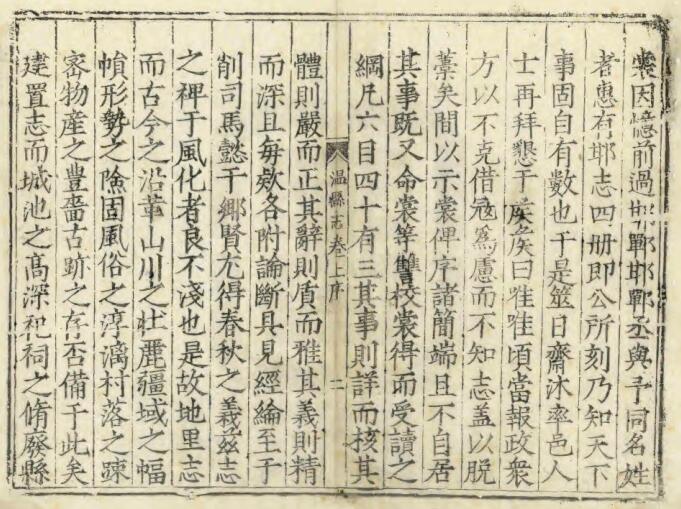 裳因憶前過邯鄲邯鄲丞與予同名姓
者惠有邯志四册即公所刻乃知天下
事固自有數也于是筮日齋沐率邑人
士再拜懇于侯侯曰唯唯頃當報政衆
方以不克借寇爲慮而不知志蓋以脱
藁矣間以示裳俾序諸簡端且不自居
其事既又命裳等讐校裳得而受讀之
綱凡六目四十有三其事則詳而核其
温縣志卷上序 二
體則嚴而正其辭則質而雅其義則精
而深且每欵各附論斷具見經綸至于
削司馬懿于鄉賢尤得春秋之義兹志
之裨于風化者良不淺也是故地里志
而古今之沿革山川之壮麗疆域之幅
幀形勢之險固風俗之淳漓村落之踈
宻物産之豊嗇古跡之存否備于此矣
建置志而城池之髙深和祠之脩廢縣